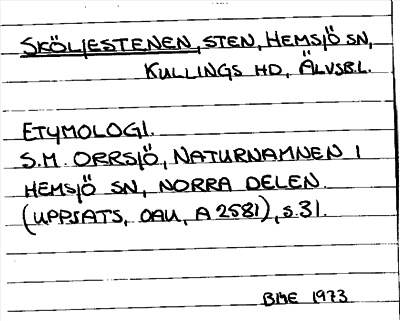 SKÖLJESTENEN, STEN, HEMSJÖ SN,
KULLINGS HD, ÄLVSB.L.
ETYMOLOGI.
S.M. ORRSJÖ, NATURNAMNEN I
HEMSJÖ SN, NORRA DELEN.
(UPPSATS, OAU, A 2581), S.31.
BME 1973